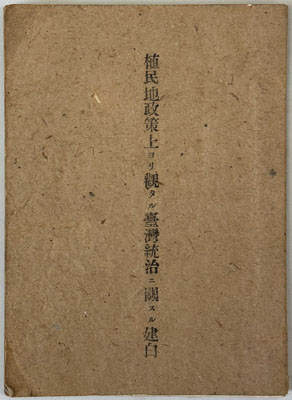 植民地政策上ヨリ觀タル臺灣統治ニ關スル建白